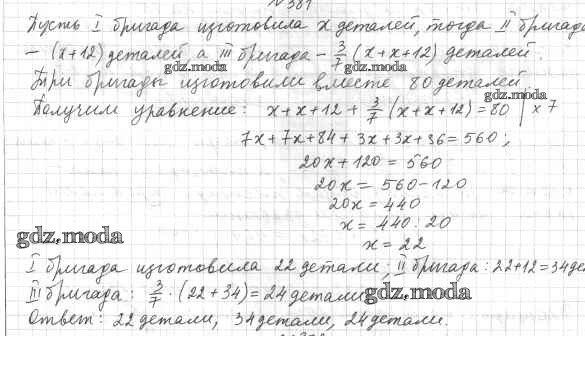 № 381
Пусть I бригада изготовила x деталей, тогда II бригада
– (x+12) деталей а III бригада – 3/7 (x+x+12) деталей.
gdz.moda gdz.moda
Три бригады изготовили вместе 80 деталей
gdz.moda
Получим уравнение: x+x+12+ 3/7 (x+x+12)=80 | x 7
7x+7x+84+3x+3x+36=560;
20x+120=560
20x=560-120
20x=440
x=440:20
gdz.moda
x=22
I бригада изготовила 22 детали; II бригада: 22+12=34де
III бригада: 3/7 · (22+34)=24детали
gdz.moda
Ответ: 22детали, 34детали, 24детали.